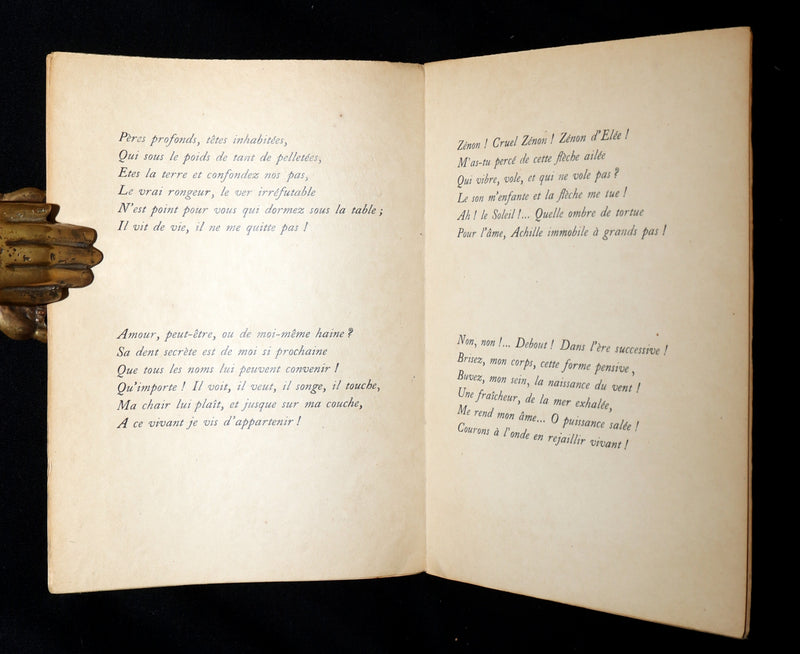 Pères profonds, têtes inhabitées,
Qui sous le poids de tant de pelletées,
Etes la terre et confondez nos pas,
Le vrai rongeur, le ver irréfutable
N'est point pour vous qui dormez sous la table ;
Il vit de vie, il ne me quitte pas !
Amour, peut-être, ou de moi-même haine ?
Sa dent secrète est de moi si prochaine
Que tous les noms lui peuvent convenir !
Qu'importe ! Il voit, il veut, il songe, il touche,
Ma chair lui plaît, et jusque sur ma couche,
A ce vivant je vis d'appartenir !
Zénon ! Cruel Zénon ! Zénon d'Elée !
M'as-tu percé de cette flèche ailée
Qui vibre, vole, et qui ne vole pas ?
Le son m'enfante et la flèche me tue !
Ah ! le Soleil !... Quelle ombre de tortue
Pour l'âme, Achille immobile à grands pas !
Non, non !... Debout ! Dans l'ère successive !
Brisez, mon corps, cette forme pensive,
Buvez, mon sein, la naissance du vent !
Une fraîcheur, de la mer exhalée,
Me rend mon âme... O puissance salée !
Courons à l'onde en rejaillir vivant !